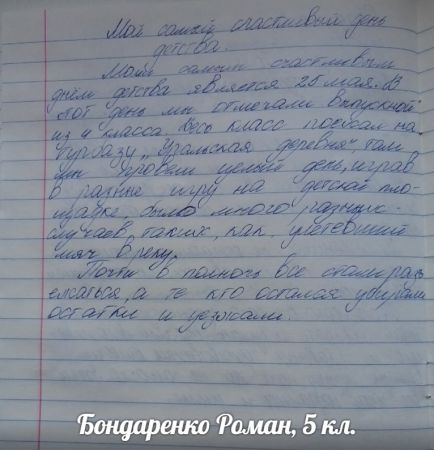 Мой самый счастливый день
детства.
Моим самым счастливым
днём детства является 25 мая. В
этот день мы отмечали выпускной
из 4 класса. Весь класс поехал на
турбазу „Уральская деревня“ там
мы провели целый день, играв
в разные игры на детской пло-
щадке, было много разных
случаев, таких, как, улетевший
мяч в реку.
Почти в полночь все стали разъ
езжаться, а те кто остался убирали
остатки и уезжали.
Бондаренко Роман, 5 кл.